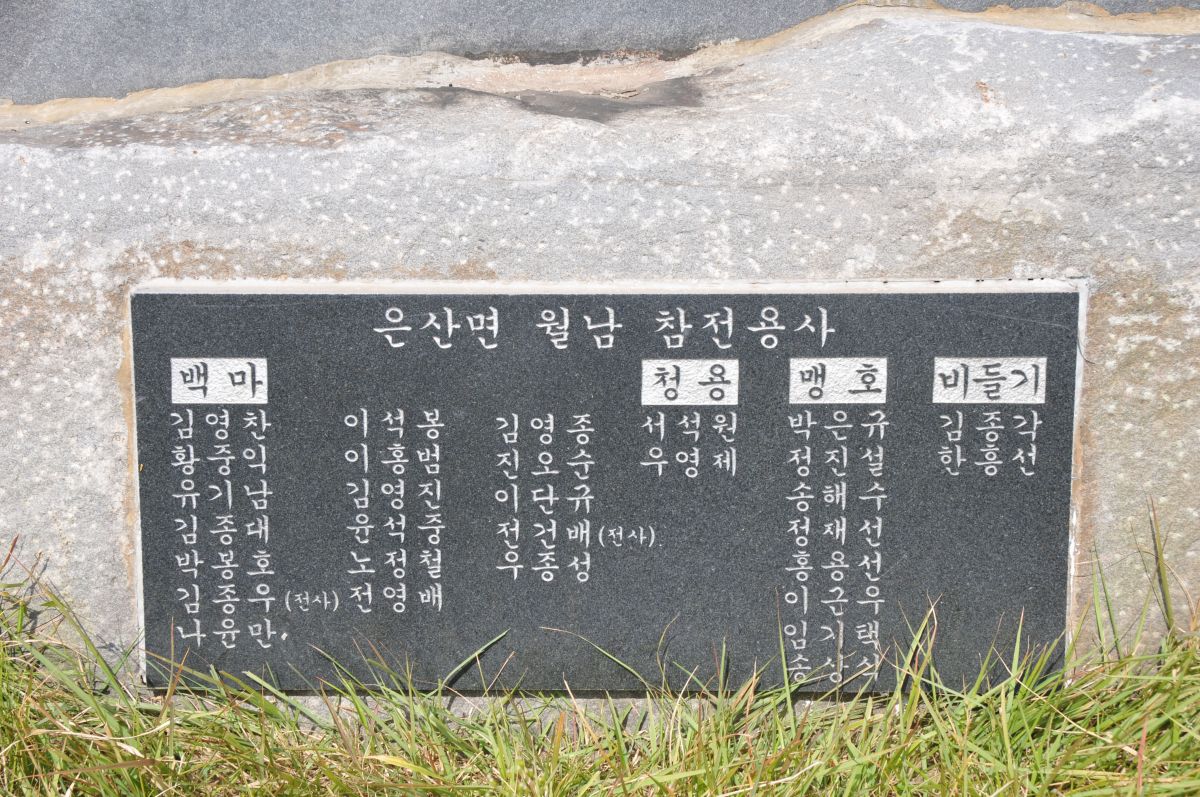 은산면 월남 참전용사
백마 청용 맹호 비들기
김영찬 이석봉 김영종 서석원 박은규 김종각
황중익 이홍범 진오순 우영제 정진설 한흥선
유기남 김영진 이단규 송해수
김종대 윤석중 전건배(전사) 정재선
박봉호 노정철 우종성 홍용선
김종우(전사) 전영배 이근우
나윤만 임기택
송상식